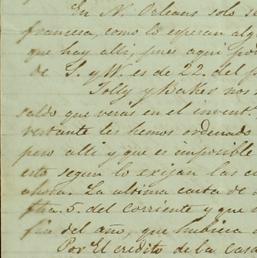 En N. Orleans solo s
francesa, como lo esperan alg
que hay alli, pues aqui
de S. y W. es de 22. del p
Tolly y nos
saldo que veras en el invent.
les hemos ordenado
pero alli y que es imposible
esto segun lo exijan las c
ahora. La ultima carta de
fha. 5. del corriente y que
fin del año, que hubiera
Por el credito de la Casa